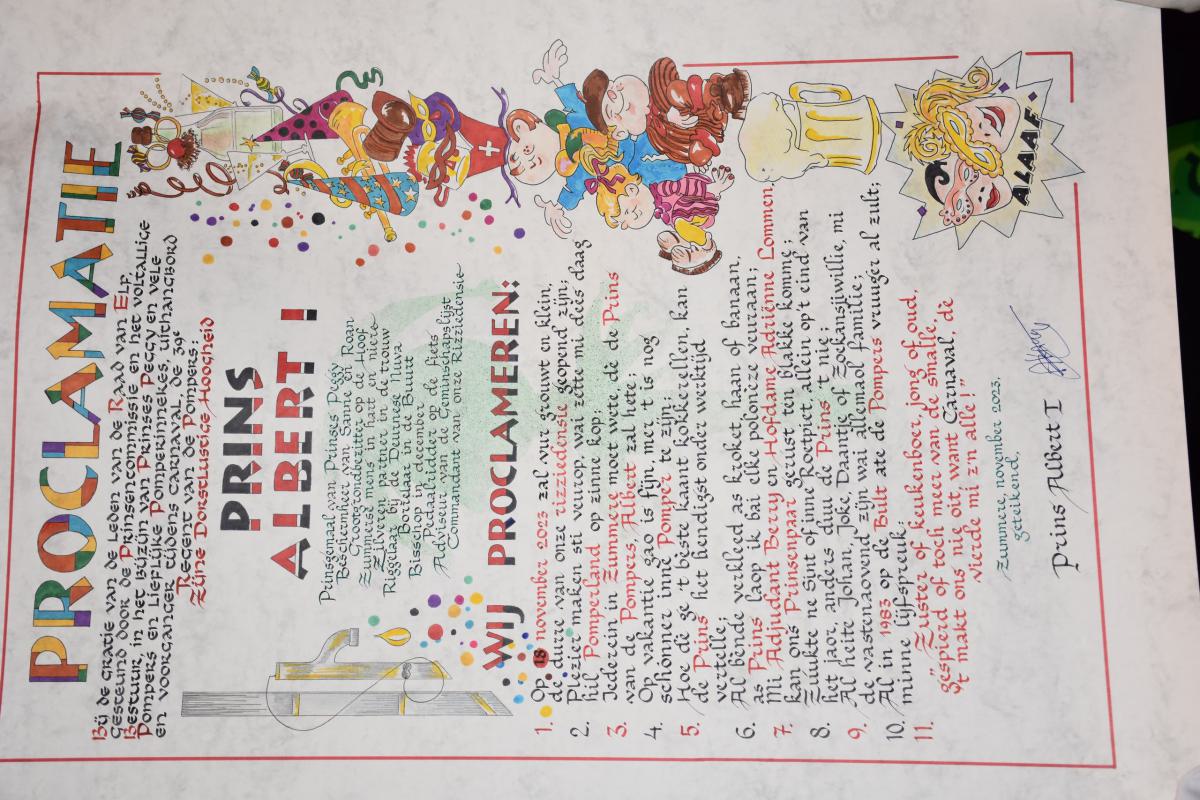 PROCLAMATIE
Bij de gratie van de leden van de Raad van Elf,
Gesteund door de Prinsencommissie en het voltallige
Bestuur, in het bijzijn van Prinses Peggy en vele
Pompers en lieflijke Pomperinnekes, uithangbord
en voorganger tijdens carnaval, de 39e
Regent van de Pompers:
Zijne Dorstlustige Hoogheid
PRINS
ALBERT I
Prinsgemaal van Prinses Peggy
Beschermheer van Sanne en Roan
Grootgrondbezitter op de Hoof
Zummerse mens in hart en niere
Zilveren partner in de trouw
Rigglaar bij de Deurnese Nuva
Borrelaar in de Buurt
Bisschop in december
Pedaalridder op de fiets
Adviseur van de Geminschapslijst
Commandant van onze Rizziedensie
WIJ PROCLAMEREN:
1. Op 18 november 2023 zal vur grouwt en klein,
de durre van onze rizziedensie geopend zijn;
2. Plezier maken sti veurop wai zette mi dees daag
hil Pomperland op zinne kop;
3. Iederein in Zummere moet wete, dè de Prins
van de Pompers Albert zal hete;
4. Op vakantie gao is fijn, mer 't is nog
schonner inne Pomper te zijn;
5. Hoe dè ge 't beste kaant kokkerellen, kan
de Prins het hendigst onder werktijd
vertelle;
6. Al bende verkleed as kroket, haan of banaan,
as Prins laop ik bai elke polonèze veuraan;
7. Mi Adjudant Berry en Hofdame Adriënne Lommen,
kan ons Prinsenpaar gerust ten blakke komme;
8. Zuukte ne Sint of inne Roetpiet allein op 't eind van
het jaor, anders duu de Prins 't nie;
9. Al hette Johan, Joke, Daantje of Zockansjiwillie, mi
de vastenavend zijn wai allemaol familie;
10. Al in 1983 op de Bult ate de Pompers vruuger al zult;
11. minne lijfspreuk:
"Zuster of keukenboer, jong of oud,
gespierd of toch meer van de smalle,
't makt ons nig oit want Carnaval, dè
vierde mi z'n alle!"
Zummere, november 2023.
geteikend,
Prins Albert I
ALAAF